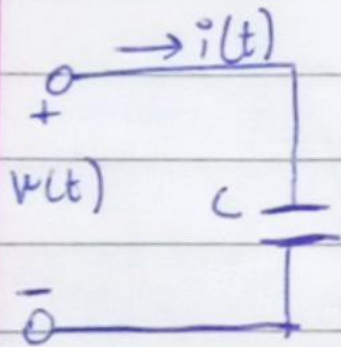 → i(t)
+
v(t)
C
−